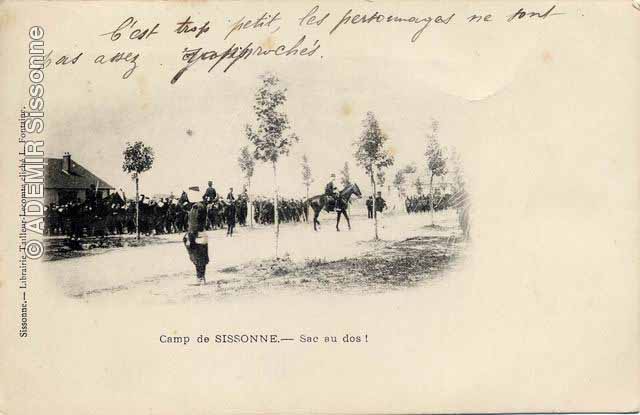 C'est trop petit, les personnages ne sont
pas assez rapprochés.
Sissonne.— Librairie Tailleur-Lecomte cliché L. Fontaine.
© ADEMIR Sissonne
Camp de SISSONNE.— Sac au dos !